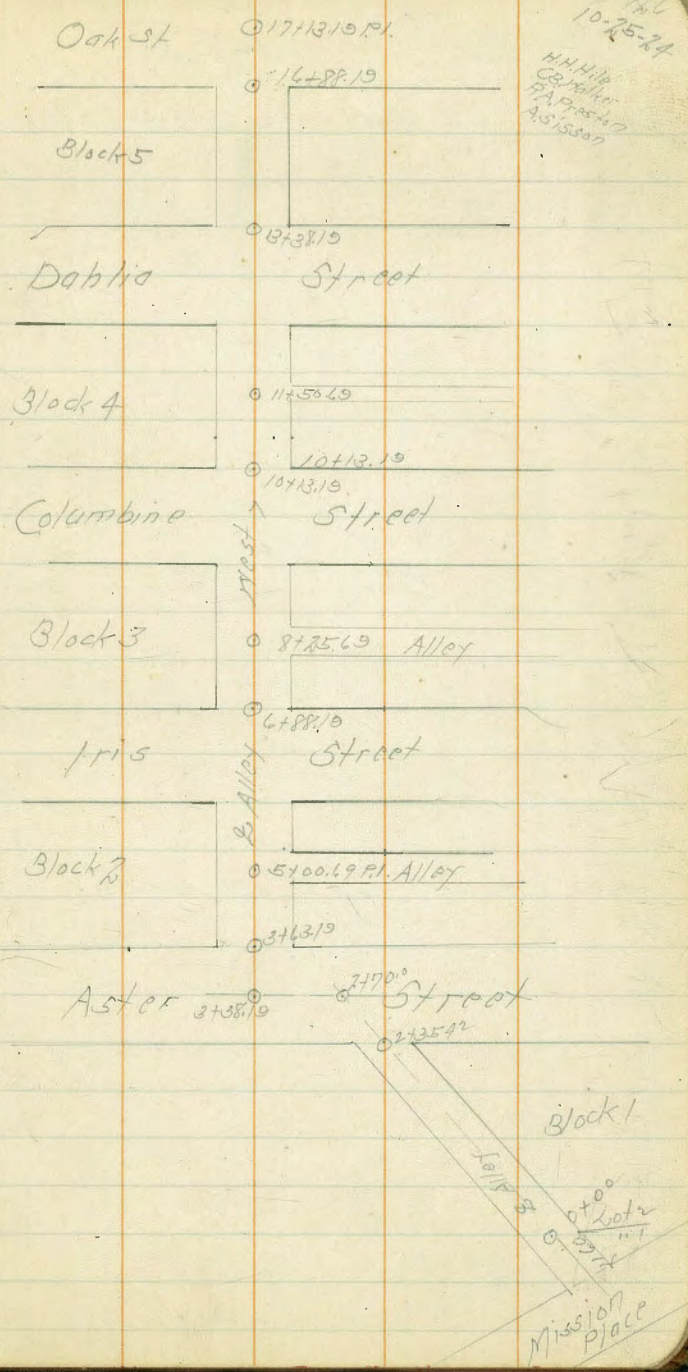 10-25-24
H.H.Hilp
C.B. Walker
R.A. Preston
A. Sisson
Oak st
17+13.19 P.I.
16+88.19
Block 5
13+38.19
Dahlia Street
Block 4
11+50.69
10+13.19
10+13.19
Columbine Street
West
Block 3
8+25.69 Alley
6+88.19
Iris Street
Alley
Block 2
5+00.69 P.I. Alley
3+63.19
Aster Street
3+38.19
2+70.0
2+35.42
Block 1
Alley
0+00
Lot 2
" 1
Mission
Place